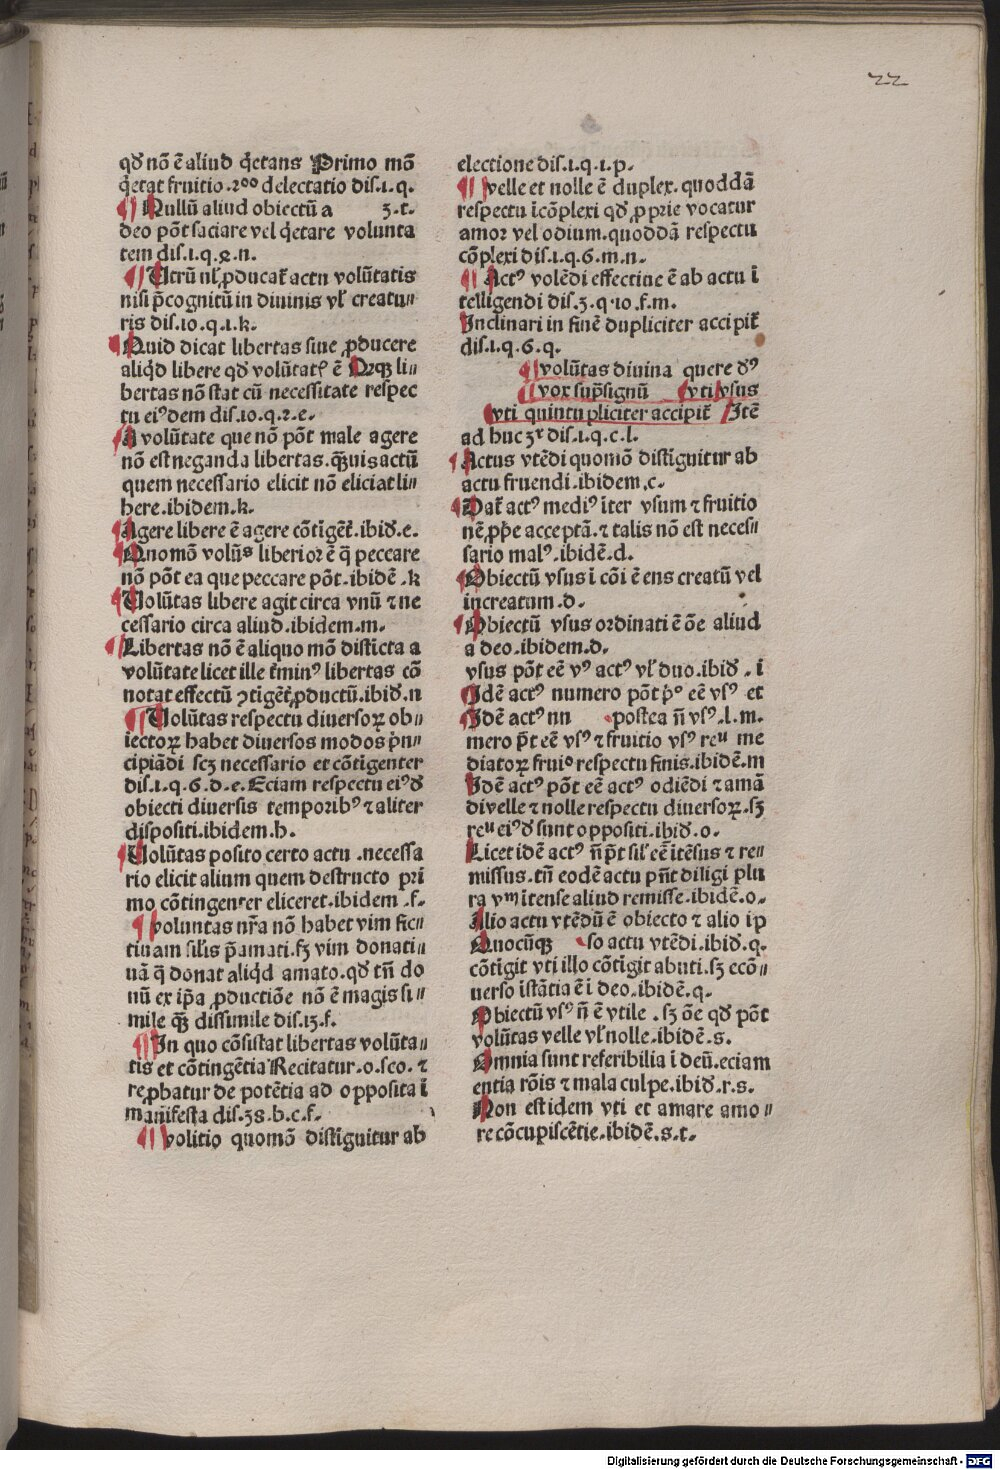 22
qđ nō ē aliud q̄etans Primo mō
q̄etat fruitio.2⁰⁰ delectatio dis.1.q.
¶ Nullū aliud obiectū a 3.t.
deo pōt saciare vel q̄etare volunta
tem dis.1.q.2.n.
¶ Utrū nl̓ ꝓducat̄ actu volūtatis
nisi p̄cognitū in diuinis vl̓ creatu⸗
ris dis.10.q.1.k.
¶ Quid dicat libertas siue ꝓducere
aliq̄d libere qđ volūtatꝭ ē Orqꝫ li⸗
bertas nō stat cū necessitate respec
tu eiꝰdem dis.10.q.2.e.
¶ A volūtate que nō pōt male agere
nō est neganda libertas.q̄ꝫuis actū
quem necessario elicit nō eliciat li⸗
bere.ibidem.k.
¶ Agere libere ē agere cōtigēt̄.ibiđ.e.
¶ Quomō volūs liberior ē q̄ peccare
nō pōt ea que peccare pōt.ibidē.k
¶ Volūtas libere agit circa vnū ⁊ ne
cessario circa aliud.ibidem.m.
¶ Libertas nō ē aliquo mō disticta a
volūtate licet ille t̄minꝰ libertas cō
notat effectū ꝯtigēt̄ ꝓductū.ibiđ.n
¶ Volūtas respectu diuersoꝝ ob⸗
iectoꝝ habet diuersos modos p̄n⸗
cipiādi scꝫ necessario et cōtigenter
dis.1.q.6.d.e.Eciam respectu eiꝰđ
obiecti diuersis temporibꝰ ⁊ aliter
dispositi.ibidem.h.
¶ Volūtas posito certo actu .necessa
rio elicit alium quem destructo pri
mo cōtingenter eliceret.ibidem .f.
¶ voluntas nr̄a nō habet vim fic⸗
tiuam sil̓is p̄amati.sꝫ vim donati⸗
uā q̄ donat aliq̄d amato.qđ tn̄ do
nū ex ip̄a ꝓductiōe nō ē magis si⸗
mile q̄ꝫ dissimile dis.13.f.
¶ In quo cōsistat libertas volūta⸗
tis et cōtingētia Recitatur.o.sco. ⁊
reꝓbatur de potētia ad opposita ī
manifesta dis.38.b.c.f.
¶ volitio quomō distiguitur ab
electione dis.1.q.1.p.
¶ velle et nolle ē duplex.quoddā
respectu īcōplexi qđ ꝓprie vocatur
amor vel odium.quoddā respectu
cōplexi dis.1.q.6.m.n.
¶ Actꝰ volēdi effectiue ē ab actu ī
telligendi dis.3.q.10.f.m.
Inclinari in finē dupliciter accipit̄
dis.1.q.6.q.
¶ volūtas diuina quere đꝰ
¶ vox sup̄signū ¶ vti vsus
¶ vti quintupliciter accipit̄ Itē
ad huc 3ʳ dis.1.q.c.l.
¶ Actus vtēdi quomō distiguitur ab
actu fruendi.ibidem.c.
¶ Dat̄ actꝰ mediꝰ iter vsum ⁊ fruitio
nē.ꝓp̄e acceptā.⁊ talis nō est neces⸗
sario malꝰ.ibidē.d.
¶ Obiectū vsus ī cōi ē ens creatū vel
increatum.d.
¶ Obiectū vsus ordinati ē ōe aliud
a deo.ibidem.d.
vsus pōt eē vꝰ actꝰ vl̓ duo.ibiđ.i
¶ Idē actꝰ numero pōt p̄ᵒ eē vsꝰ et
¶ Idē actꝰ nu postea n̄ vsꝰ.l.m.
mero p̄t eē vsꝰ ⁊ fruitio vsꝰ reᵘ me
diatoꝝ fruiᵒ respectu finis.ibidē.m
Idē actꝰ pōt eē actꝰ odiēdi ⁊ amā
di velle ⁊ nolle respectu diuersoꝝ.sꝫ
reᵘ eiꝰđ sunt oppositi.ibiđ.o.
Licet idē actꝰ n̄ p̄t sil̓ eē itēsus ⁊ re⸗
missus.tn̄ eodē actu pn̄t diligi plu
ra vᵐ itense aliud remisse.ibidē.o.
Alio actu vtēdū ē obiecto ⁊ alio ip
Quocūqꝫ so actu vtēdi.ibiđ.q.
cōtigit vti illo cōtigit abuti.sꝫ ecō⸗
uerso īstātia ē ī deo.ibidē.q.
Obiectū vsꝰ n̄ ē vtile .sꝫ ōe qđ pōt
volūtas velle vl̓ nolle.ibidē.s.
Omnia sunt referibilia ī deū.eciam
entia rōis ⁊ mala culpe.ibiđ.r.s.
Non est idem vti et amare amo⸗
re cōcupiscētie.ibidē.s.t.
Digitalisierung gefördert durch die Deutsche Forschungsgemeinschaft - DFG